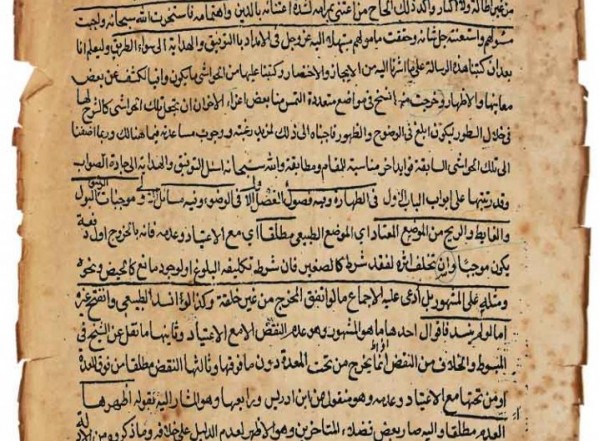 من غير اطالة ولا اكثار واكد ذلك الحاح من اعتنى بمرامه لشدة اعتنائه بالدين واهتمامه فاستخرت الله سبحانه واجبت
مسئولهم واستعنته جل شانه وحققت مامولهم مبتهلا اليه عز وجل في الامداد بالتوفيق والهداية الى سواء الطريق وليعلم انا
بعد ان كتبنا هذه الرسالة على ما اشرنا اليه من الايجاز والاختصار وكتبنا عليها من الحواشي ما يكون وافيا بالكشف عن بعض
معانيها والاظهار وخرجت منه النسخ في مواضع متعددة التمس منا بعض اعزاء الاخوان ان يجعل تلك الحواشي كالشرح لها
في خلال السطور ليكون ابلغ في الوضوح والظهور فاجبناه الى ذلك لمزيد رغبته ووجوب مساعدته فيما هنالك وربما اضفنا
الى تلك الحواشي السابقة فوايد اخر مناسبة للمقام ومطابقة والله سبحانه اسئل التوفيق والهداية الى جادة الصواب
وقد رتبتها على ابواب الباب الاول في الطهارة وفيه فصول الفصل الاول في الوضوء وفيه مسائل الاولى موجبات الوضوء البول
والغايط والريح من الموضع المعتاد اي الموضع الطبيعي مطلقا اي مع الاعتياد وعدمه فانه بالخروج اول دفعة
يكون موجبا وان تخلف اثره لفقد شرط كالصغير فان شرط تكليفه البلوغ او لوجود مانع كالحيض ونحوه
ومثله على المشهور بل ادعى عليه الاجماع ما لو اتفق المخرج من غير خلقة وكذا لو انسد الطبيعي وانفتح غيره
اما لو لم ينسد فاقوال احدها ما هو المشهور وهو عدم النقض الا مع الاعتياد وثانيها ما نقل عن الشيخ في
المبسوط والخلاف من النقض اذا خرج من تحت المعدة دون ما فوقها وثالثها النقض مطلقا من فوق المعدة
او من تحتها مع الاعتياد وعدمه وهو منقول عن ابن ادريس ورابعها وهو المشار اليه بقوله اظهرها
العدم مطلقا واليه صار بعض فضلاء المتاخرين وهو الاظهر لعدم الدليل على خلافه وما ذكروه من الادلة